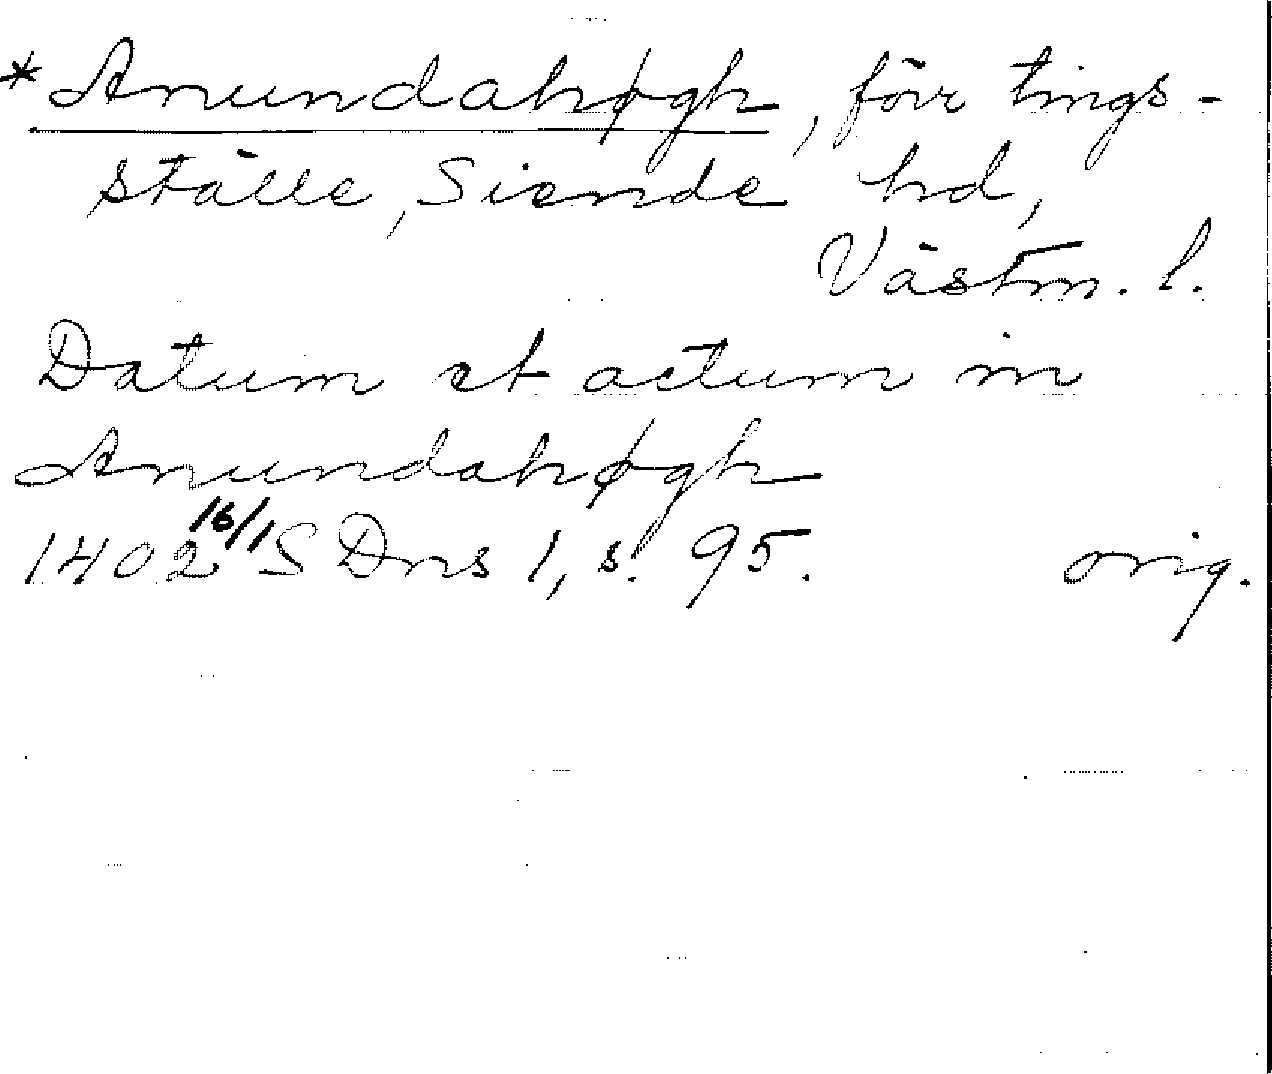 * Anundahøgh, förr tings-
ställe, Siende hd,
Västm. l.
Datum et actum in
Anundahøgh
1402 16/1 SDns 1, s. 95. orig.